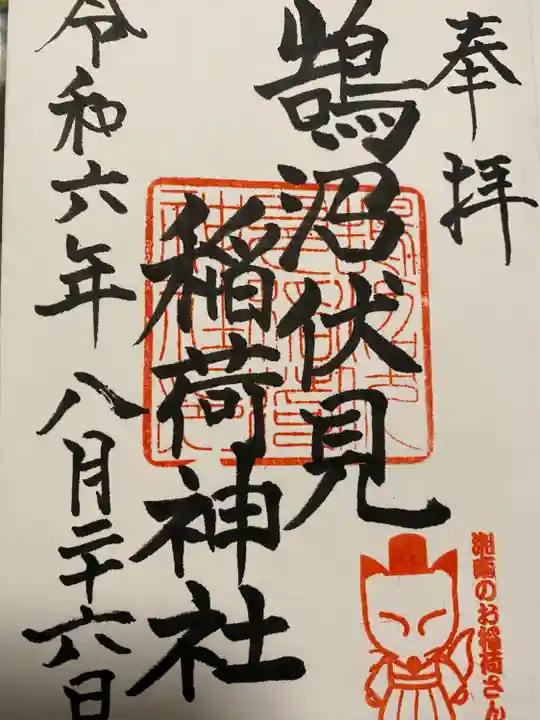 奉拝
鵠沼伏見
稲荷神社
令和六年八月二十六日
湘南のお稲荷さん